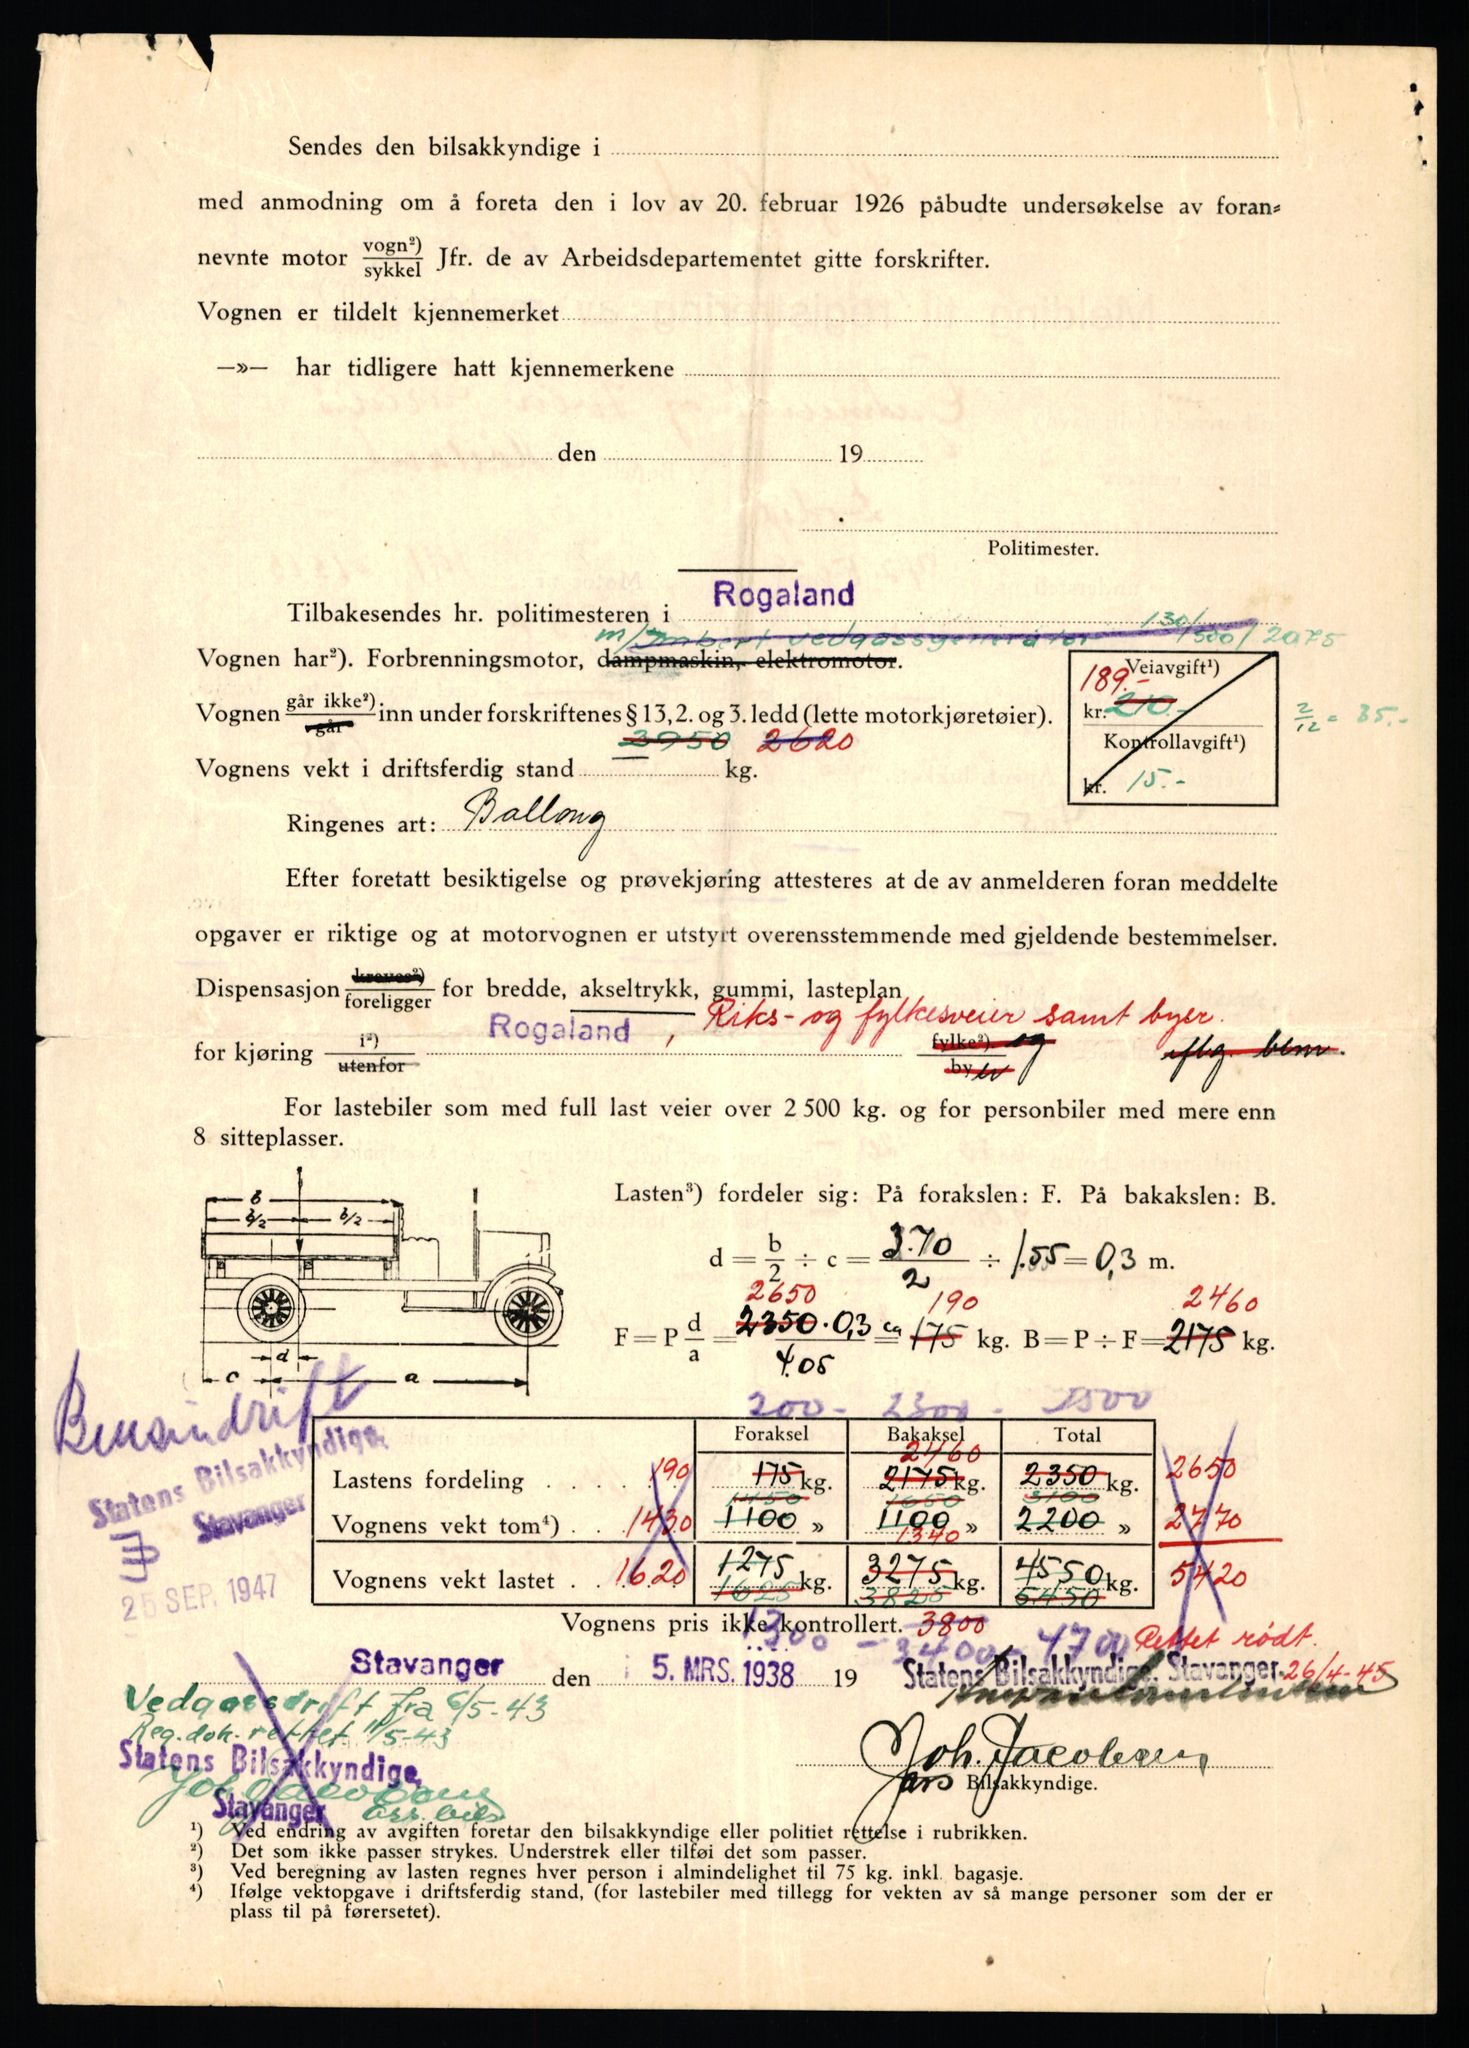 Sendes den bilsakkyndige i
med anmodning om å foreta den i lov av 20. februar 1926 påbudte undersøkelse av foran=
nevnte motor vogn²) / sykkel Jfr. de av Arbeidsdepartementet gitte forskrifter.
Vognen er tildelt kjennemerket
—»— har tidligere hatt kjennemerkene
den 19
Politimester.
Tilbakesendes hr. politimesteren i Rogaland
m/Imbert vedgassgenerator 130/500/2075
Vognen har²). Forbrenningsmotor, dampmaskin, elektromotor.
Veiavgift¹)
189.-
kr. 210.-
2/12 = 35.-
Kontrollavgift¹)
kr. 15.-
Vognen går ikke²) / går inn under forskriftenes § 13, 2. og 3. ledd (lette motorkjøretøier).
3950 2620
Vognens vekt i driftsferdig stand kg.
Ringenes art: Ballong
Efter foretatt besiktigelse og prøvekjøring attesteres at de av anmelderen foran meddelte
opgaver er riktige og at motorvognen er utstyrt overensstemmende med gjeldende bestemmelser.
Dispensasjon kreves²) / foreligger for bredde, akseltrykk, gummi, lasteplan
Rogaland, Riks- og fylkesveier samt byer.
for kjøring i²) / utenfor fylke²). og / by er iflg. bem.
For lastebiler som med full last veier over 2 500 kg. og for personbiler med mere enn
8 sitteplasser.
b
b/2 b/2
d
c a
Lasten³) fordeler sig: På forakslen: F. På bakakslen: B.
d = b/2 ÷ c = 3.70/2 ÷ 1.55 = 0,3 m.
2650 190 2460
F = P d/a = 2350 · 0,3 / 4.05 = ca 175 kg. B = P ÷ F = 2175 kg.
Bensindrift
Statens Bilsakkyndige,
Stavanger
25 SEP. 1947
200 - 2300 - 2500
Foraksel Bakaksel Total
2460
Lastens fordeling . . . . 190 175 kg. 2175 kg. 2350 kg. 2650
1450 1650 3100
Vognens vekt tom⁴) . . 1430 1100 » 1100 » 2200 » 2770
1340
Vognens vekt lastet . . 1620 1275 kg. 3275 kg. 4550 kg. 5420
1625 3825 5450
Vognens pris ikke kontrollert. 3800
1300 - 3400 - 4700
Rettet rødt.
Stavanger den 5. MRS. 1938 19 Statens Bilsakkyndige, Stavanger. 26/4-45
Vedgassdrift fra 6/5-43
Reg.dok. rettet 11/5-43
Statens Bilsakkyndige,
Joh. Jacobsen
Stavanger ass. bils
Joh. Jacobsen
ass Bilsakkyndige.
¹) Ved endring av avgiften foretar den bilsakkyndige eller politiet rettelse i rubrikken.
²) Det som ikke passer strykes. Understrek eller tilføi det som passer.
³) Ved beregning av lasten regnes hver person i almindelighet til 75 kg. inkl. bagasje.
⁴) Ifølge vektopgave i driftsferdig stand, (for lastebiler med tillegg for vekten av så mange personer som der er
plass til på førersetet).